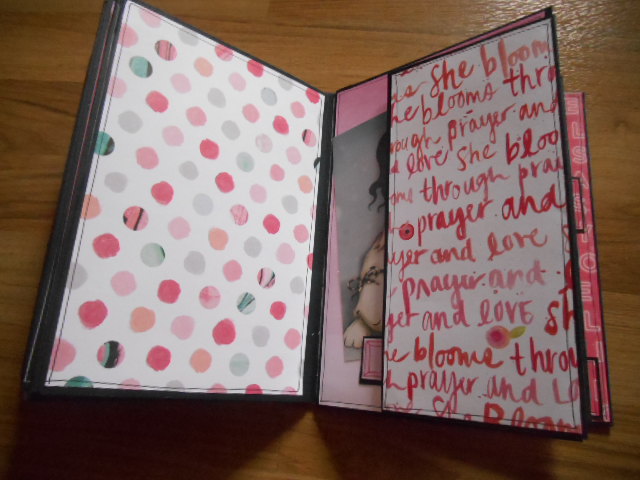 she bloom
he blooms thro
ough prayer and
d love she bloo
ms through pray
prayer and
ayer and love s
prayer and
er and love sh
he blooms throu
h prayer and Lo
she Bloom